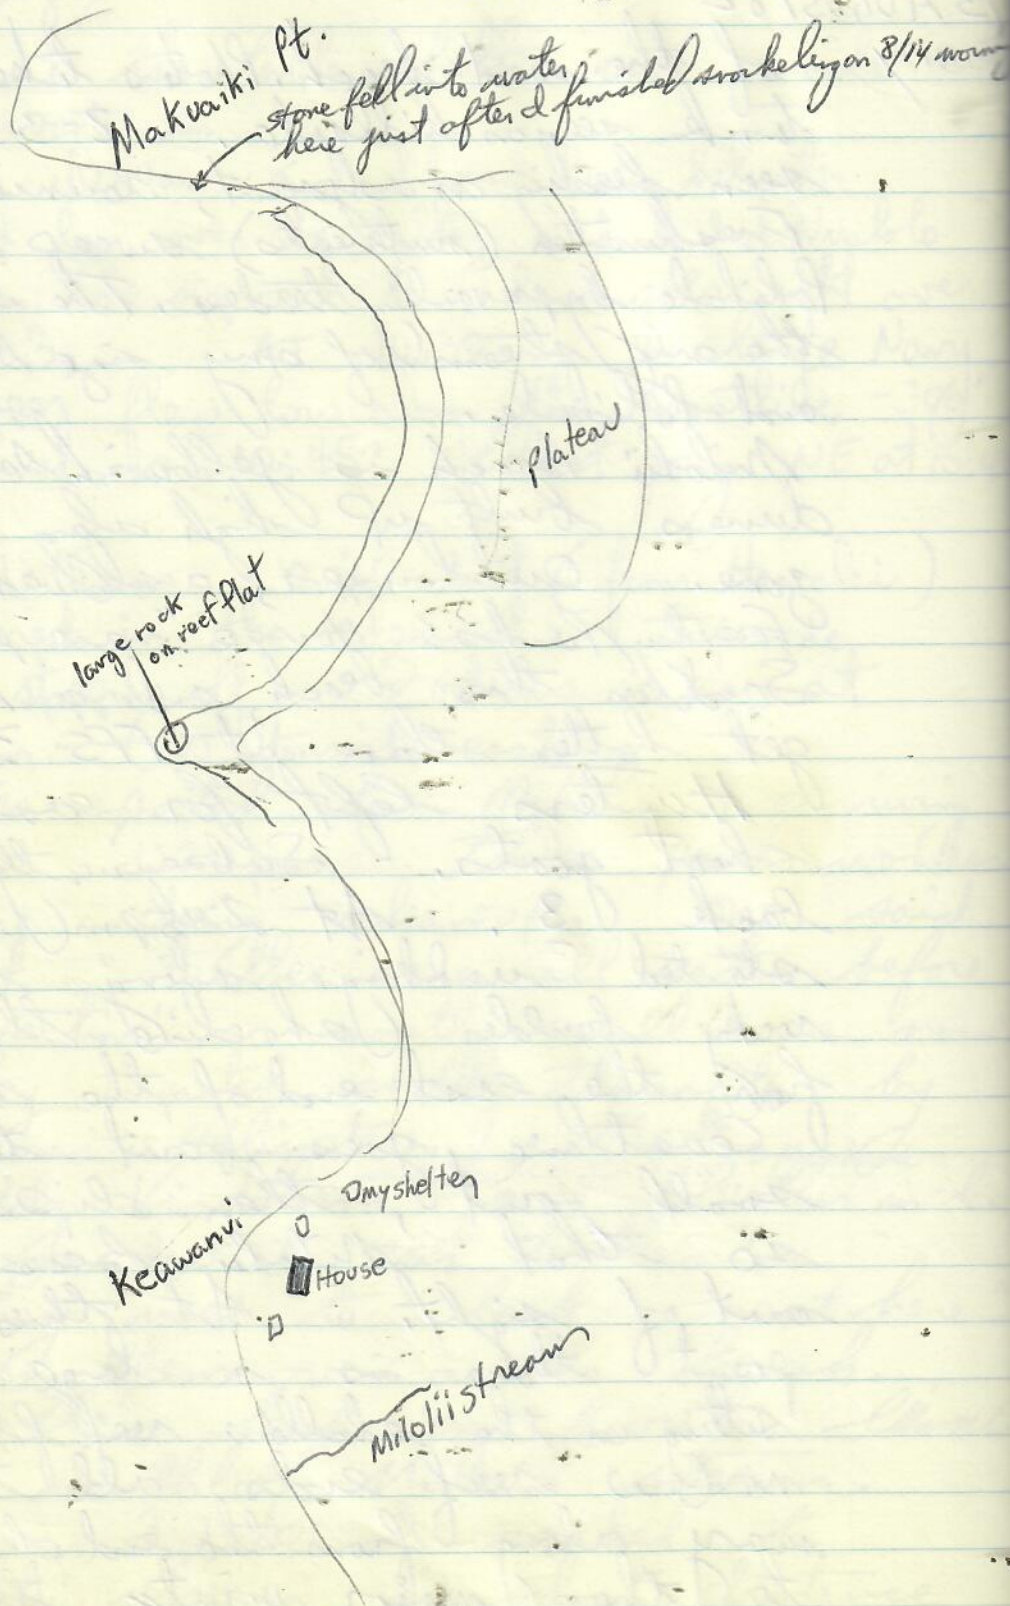 Makuaiki Pt.
stone fell into water
here just after I finished snorkeling on 8/14 morn
plateau
large rock
on reef flat
my shelter
Keawanui
House
Milolii stream